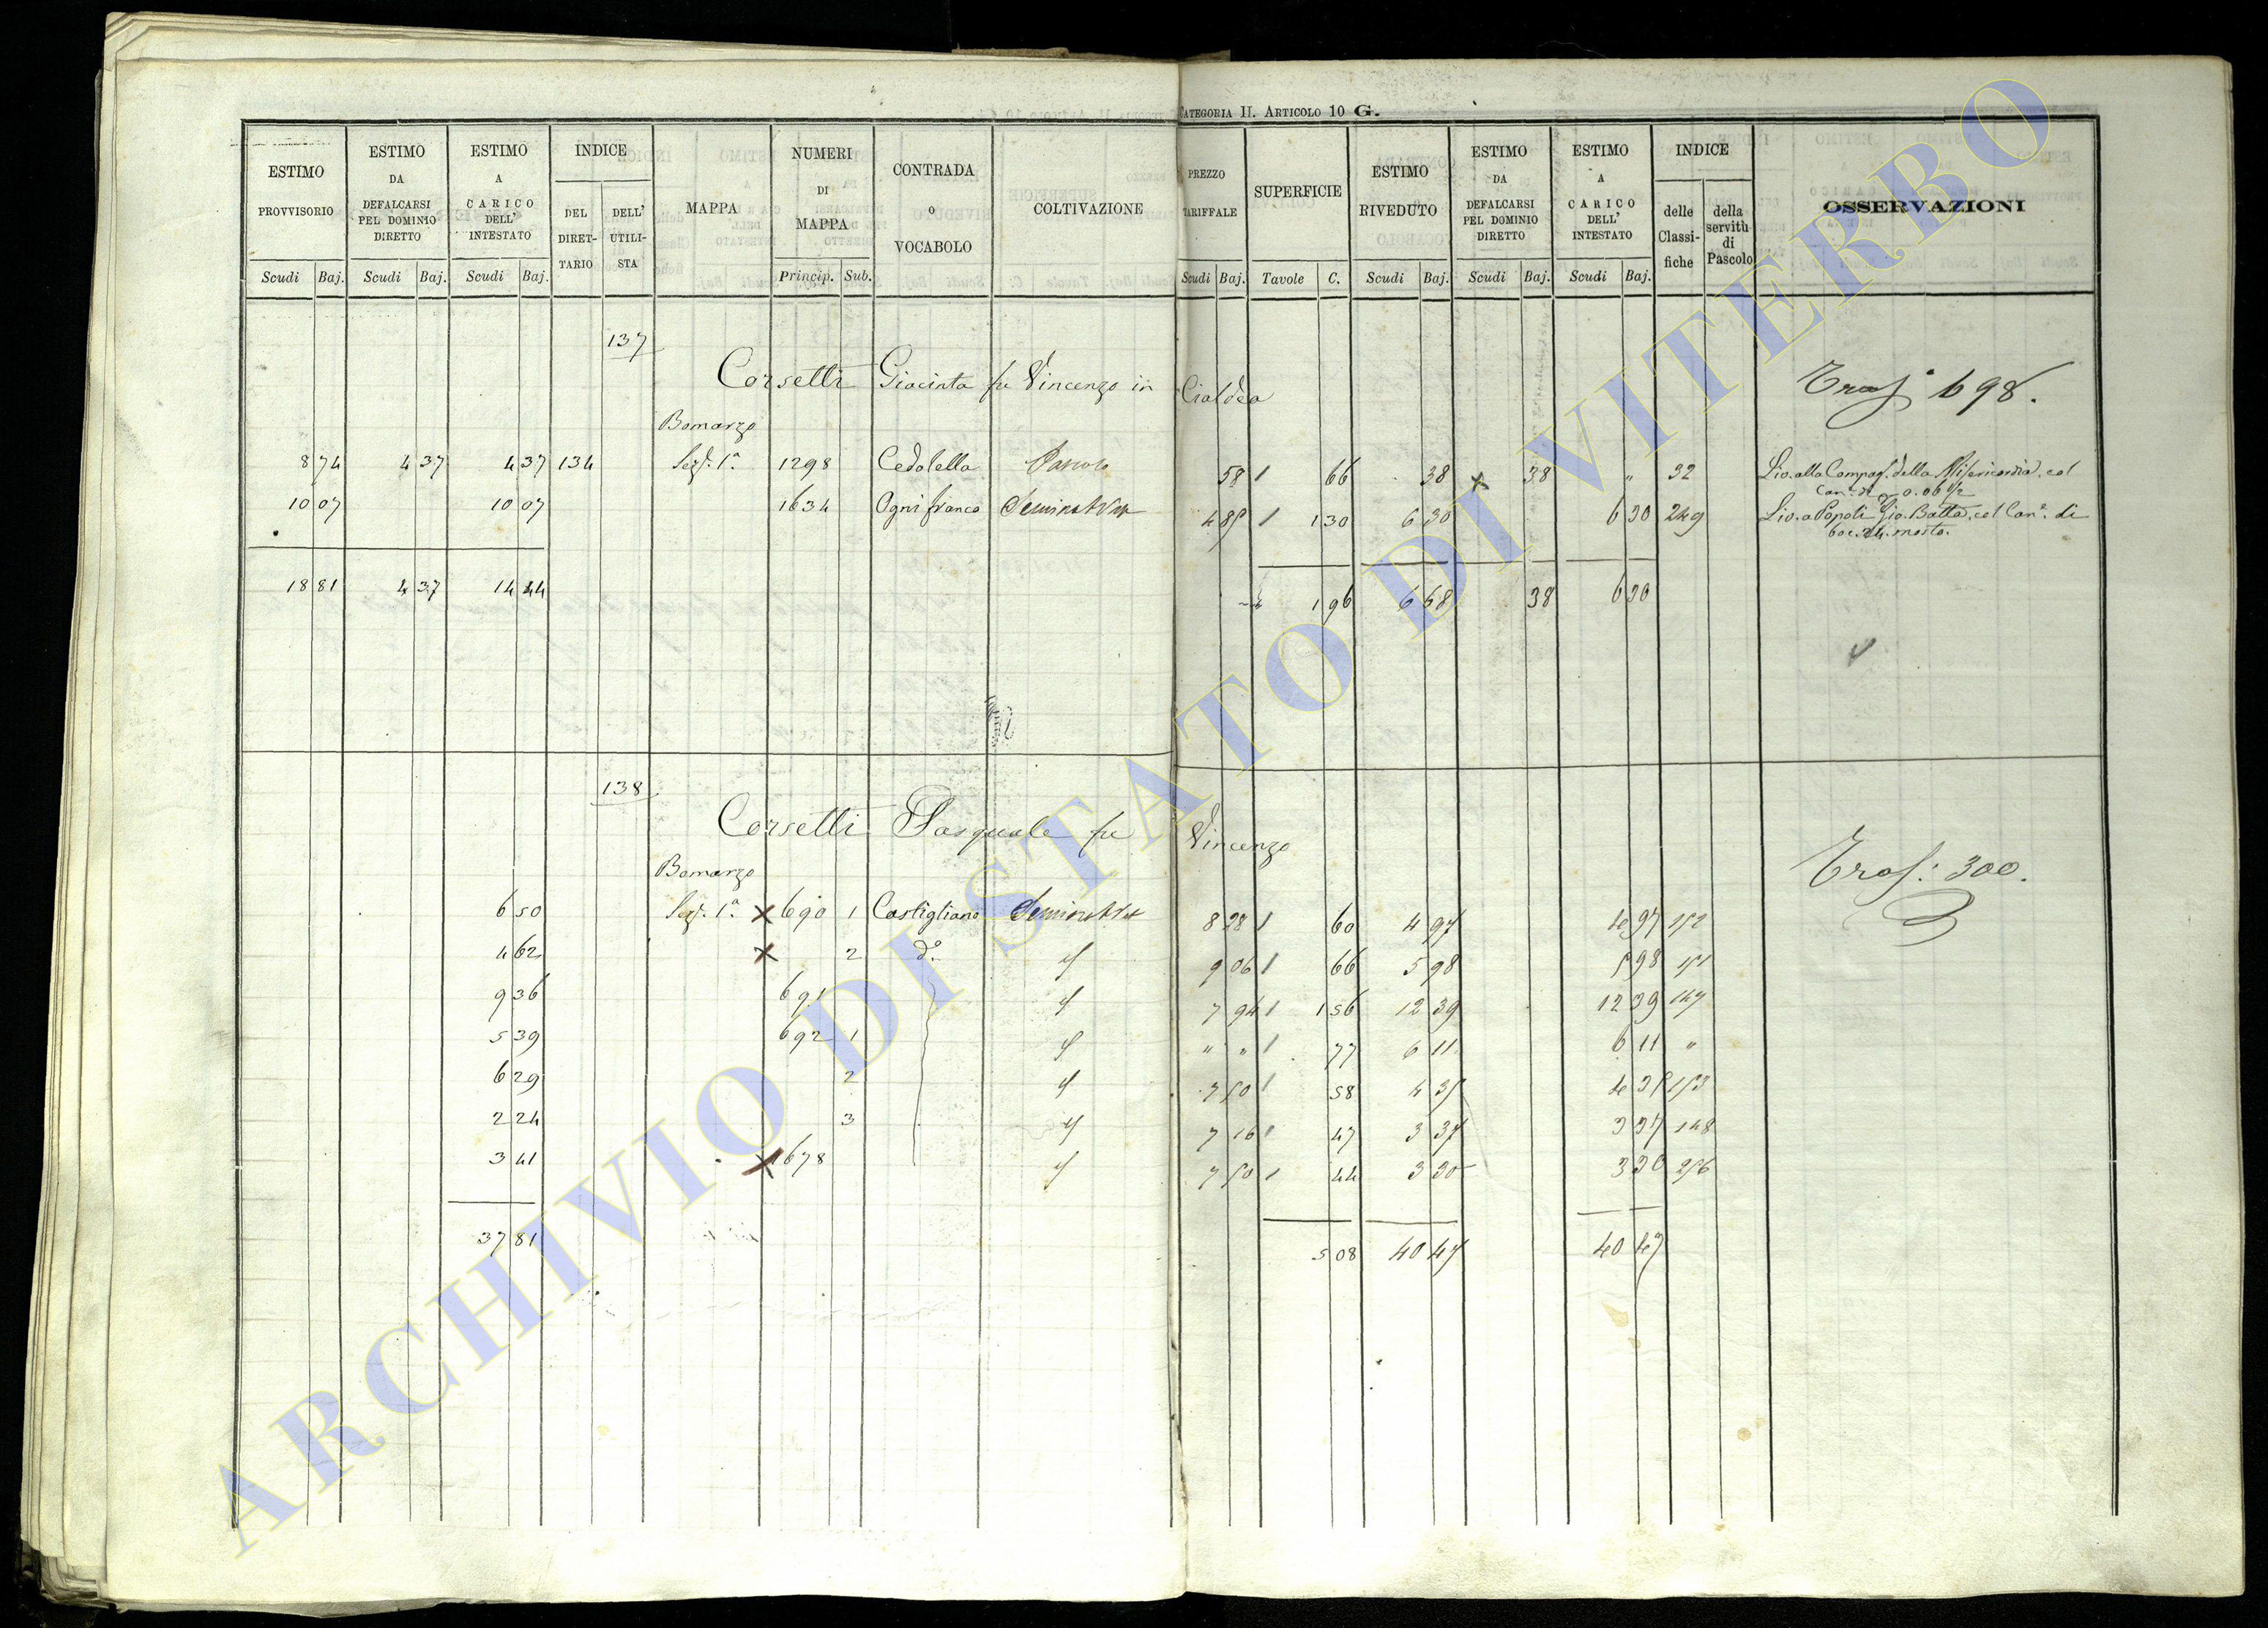 CATEGORIA II. ARTICOLO 10 G.
ESTIMO PROVVISORIO
ESTIMO DA DEFALCARSI PEL DOMINIO DIRETTO
ESTIMO A CARICO DELL' INTESTATO
INDICE
DEL DIRETTARIO
DELL' UTILISTA
MAPPA
NUMERI DI MAPPA
CONTRADA O VOCABOLO
COLTIVAZIONE
PREZZO TARIFFALE
SUPERFICIE
ESTIMO RIVEDUTO
ESTIMO DA DEFALCARSI PEL DOMINIO DIRETTO
ESTIMO A CARICO DELL' INTESTATO
INDICE
delle Classifiche
della servitù di Pascolo
OSSERVAZIONI
Scudi Baj. Scudi Baj. Scudi Baj. Princip. Sub. Scudi Baj. Tavole C. Scudi Baj. Scudi Baj. Scudi Baj.
137
Corsetti Giacinta fu Vincenzo in Cialdea
Trasf. 698.
Bomarzo
8 74 4 37 4 37 134 Sez. 1a. 1298 Cedolella Pascolo 58 1 66 38 x 38 " 32 Liv. alla Compag. della Misericordia col
Can. di 0.06 1/2
10 07 10 07 1634 Ogni franco Seminativo 485 1 1 30 6 30 6 30 249 Liv. a Popoli Gio. Batta. col Can. di
boc. 24. mosto.
18 81 4 37 14 44 1 96 6 68 38 6 30
138
Corsetti Pasquale fu Vincenzo
Trasf: 300.
Bomarzo
6 50 Sez. 1a. x 690 1 Castigliano Seminativo 8 28 1 60 4 97 4 97 152
4 62 x 2 do. 9 06 1 66 5 98 5 98 151
9 36 691 7 94 1 1 56 12 39 12 39 147
5 39 692 1 " " 1 77 6 11 6 11 "
6 29 2 7 50 1 58 4 35 4 35 153
2 24 3 7 16 1 47 3 37 3 37 148
3 41 x 1678 7 50 1 44 3 30 3 30 256
37 81 5 08 40 47 40 47
ARCHIVIO DI STATO DI VITERBO